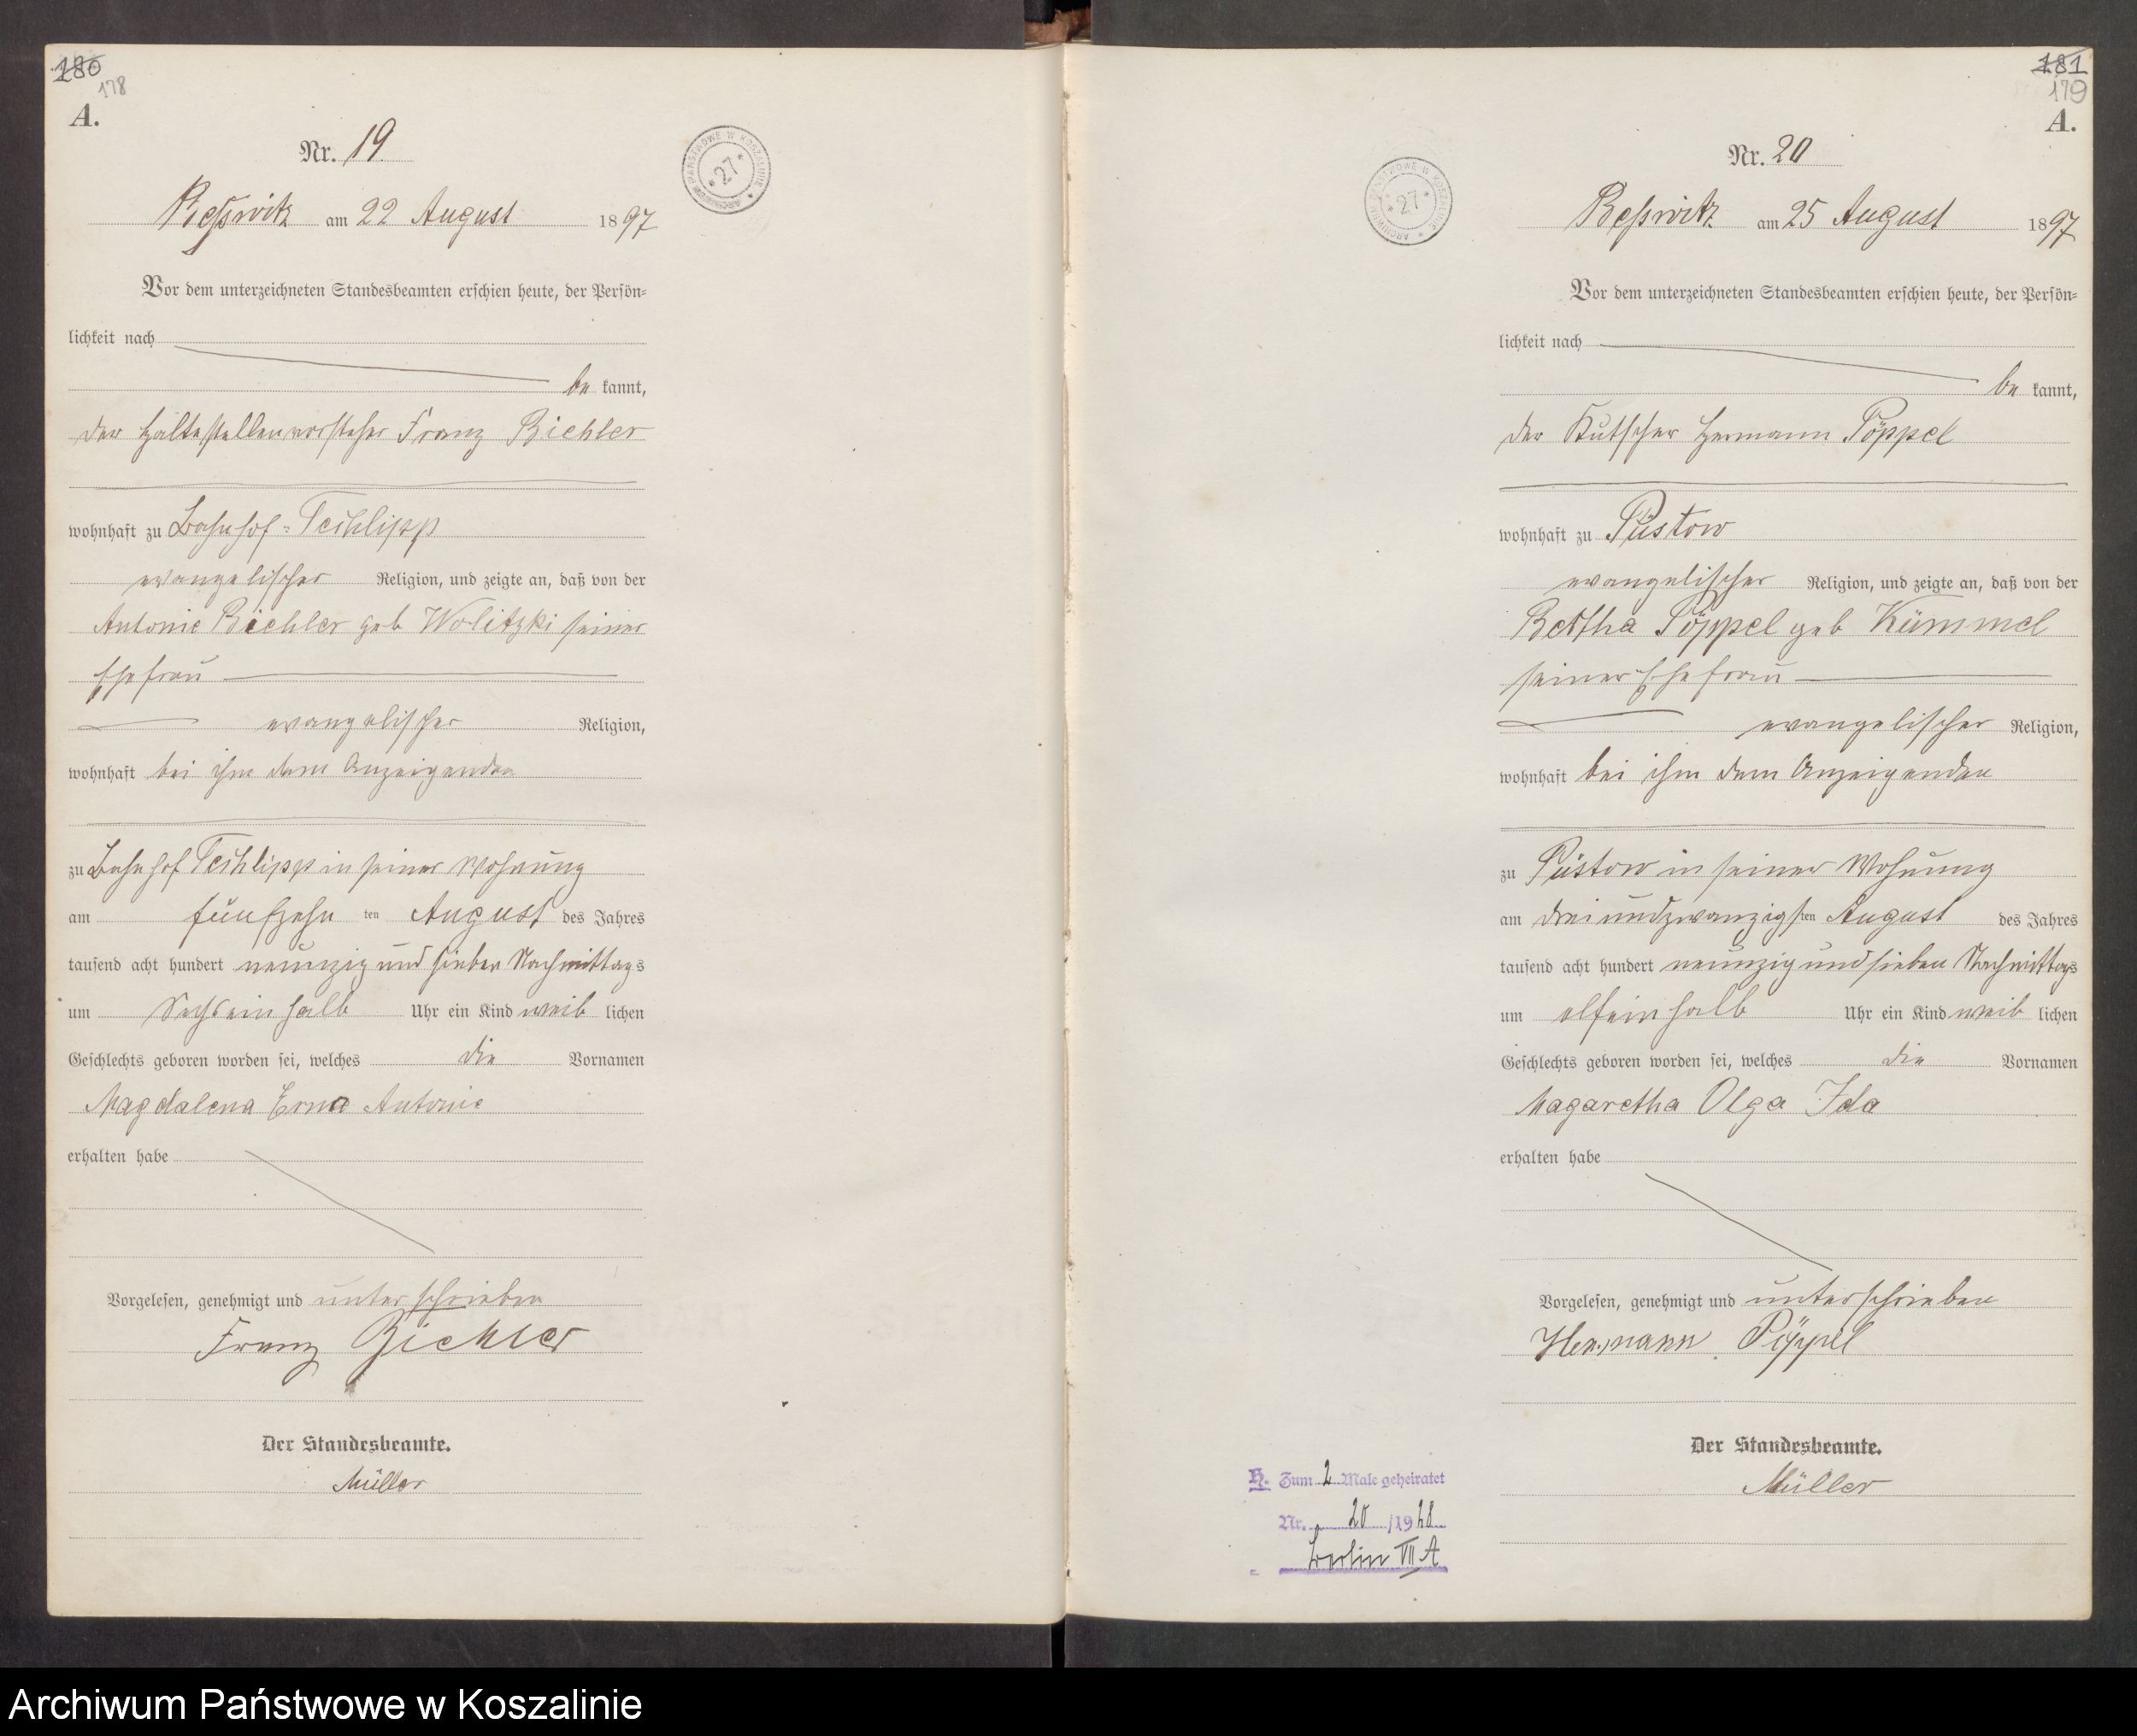 180
178
A.
Nr. 19
ARCHIWUM PAŃSTWOWE W KOSZALINIE
* 27 *
Beßwitz am 22 August 1897
Vor dem unterzeichneten Standesbeamten erschien heute, der Persön-
lichkeit nach
be kannt,
der Haltestellenvorsteher Franz Biehler
wohnhaft zu Bahnhof-Techlipp
evangelischer Religion, und zeigte an, daß von der
Antonie Biehler geb Wolitzki seiner
Ehefrau
evangelischer Religion,
wohnhaft bei ihm dem Anzeigenden
zu Bahnhof Techlipp in seiner Wohnung
am fünfzehn ten August des Jahres
tausend acht hundert neunzig und sieben Nachmittags
um Sechseinhalb Uhr ein Kind weib lichen
Geschlechts geboren worden sei, welches die Vornamen
Magdalena Erna Antonie
erhalten habe
Vorgelesen, genehmigt und unterschrieben
Franz Biehler
Der Standesbeamte.
Müller
181
179
A.
Nr. 20
ARCHIWUM PAŃSTWOWE W KOSZALINIE
* 27 *
Beßwitz am 25 August 1897
Vor dem unterzeichneten Standesbeamten erschien heute, der Persön-
lichkeit nach
be kannt,
der Kutscher Hermann Pöppel
wohnhaft zu Püstow
evangelischer Religion, und zeigte an, daß von der
Bertha Pöppel geb Kümmel
seiner Ehefrau
evangelischer Religion,
wohnhaft bei ihm dem Anzeigenden
zu Püstow in seiner Wohnung
am dreiundzwanzigsten August des Jahres
tausend acht hundert neunzig und sieben Nachmittags
um elfeinhalb Uhr ein Kind weib lichen
Geschlechts geboren worden sei, welches die Vornamen
Magaretha Olga Ida
erhalten habe
Vorgelesen, genehmigt und unterschrieben
Hermann Pöppel
Der Standesbeamte.
Müller
H. Zum 2 Male geheiratet
Nr. 20 /1928
Berlin VII A
Archiwum Państwowe w Koszalinie